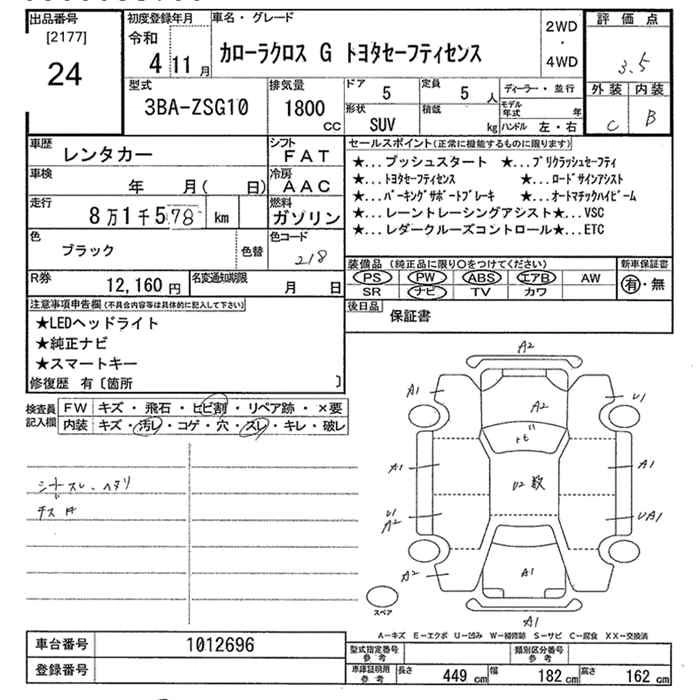 出品番号 初度登録年月 車名・グレード 2WD 評価点
[2177] 令和 ・
24 4年11月 カローラクロス G トヨタセーフティセンス 4WD 3.5
外装 内装
C B
型式 排気量 ドア 5 定員 5人 ディーラー・並行
3BA-ZSG10 1800cc 形状 SUV 積載 kg モデル年式 年
ハンドル 左・右
車歴 レンタカー シフト FAT セールスポイント(正常に機能するものに限ります)
★...プッシュスタート ★...プリクラッシュセーフティ
車検 年 月( 日) 冷房 AAC ★...トヨタセーフティセンス ★...ロードサインアシスト
★...パーキングサポートブレーキ ★...オートマチックハイビーム
走行 8万1千578km 燃料 ガソリン ★...レーントレーシングアシスト★...VSC
★...レーダークルーズコントロール★...ETC
色 ブラック 色替 色コード 218
装備品(純正品に限り○をつけてください) 新車保証書
PS PW ABS エアB AW 有・無
SR ナビ TV カワ
R券 12,160円 名変通知期限 月 日
後日品 保証書
注意事項申告欄(不具合内容等は具体的に記入して下さい)
★LEDヘッドライト
★純正ナビ
★スマートキー
修復歴 有〔箇所 〕
検査員記入欄 FW キズ・飛石・ヒビ割・リペア跡・×要
内装 キズ・汚レ・コゲ・穴・スレ・キレ・破レ
シートスレ・ヘタリ
A2
A1 A2 U1
トビ
A1 U2 数 A1
U1
A2 UA1
A2 A1 A1
スペア
A1
A-キズ E-エクボ U-凹み W-補修跡 S-サビ C-腐食 XX-交換済
車台番号 1012696
登録番号
型式指定番号 参考 類別区分番号 参考
車庫証明用 参考 長さ 449cm 幅 182cm 高さ 162cm